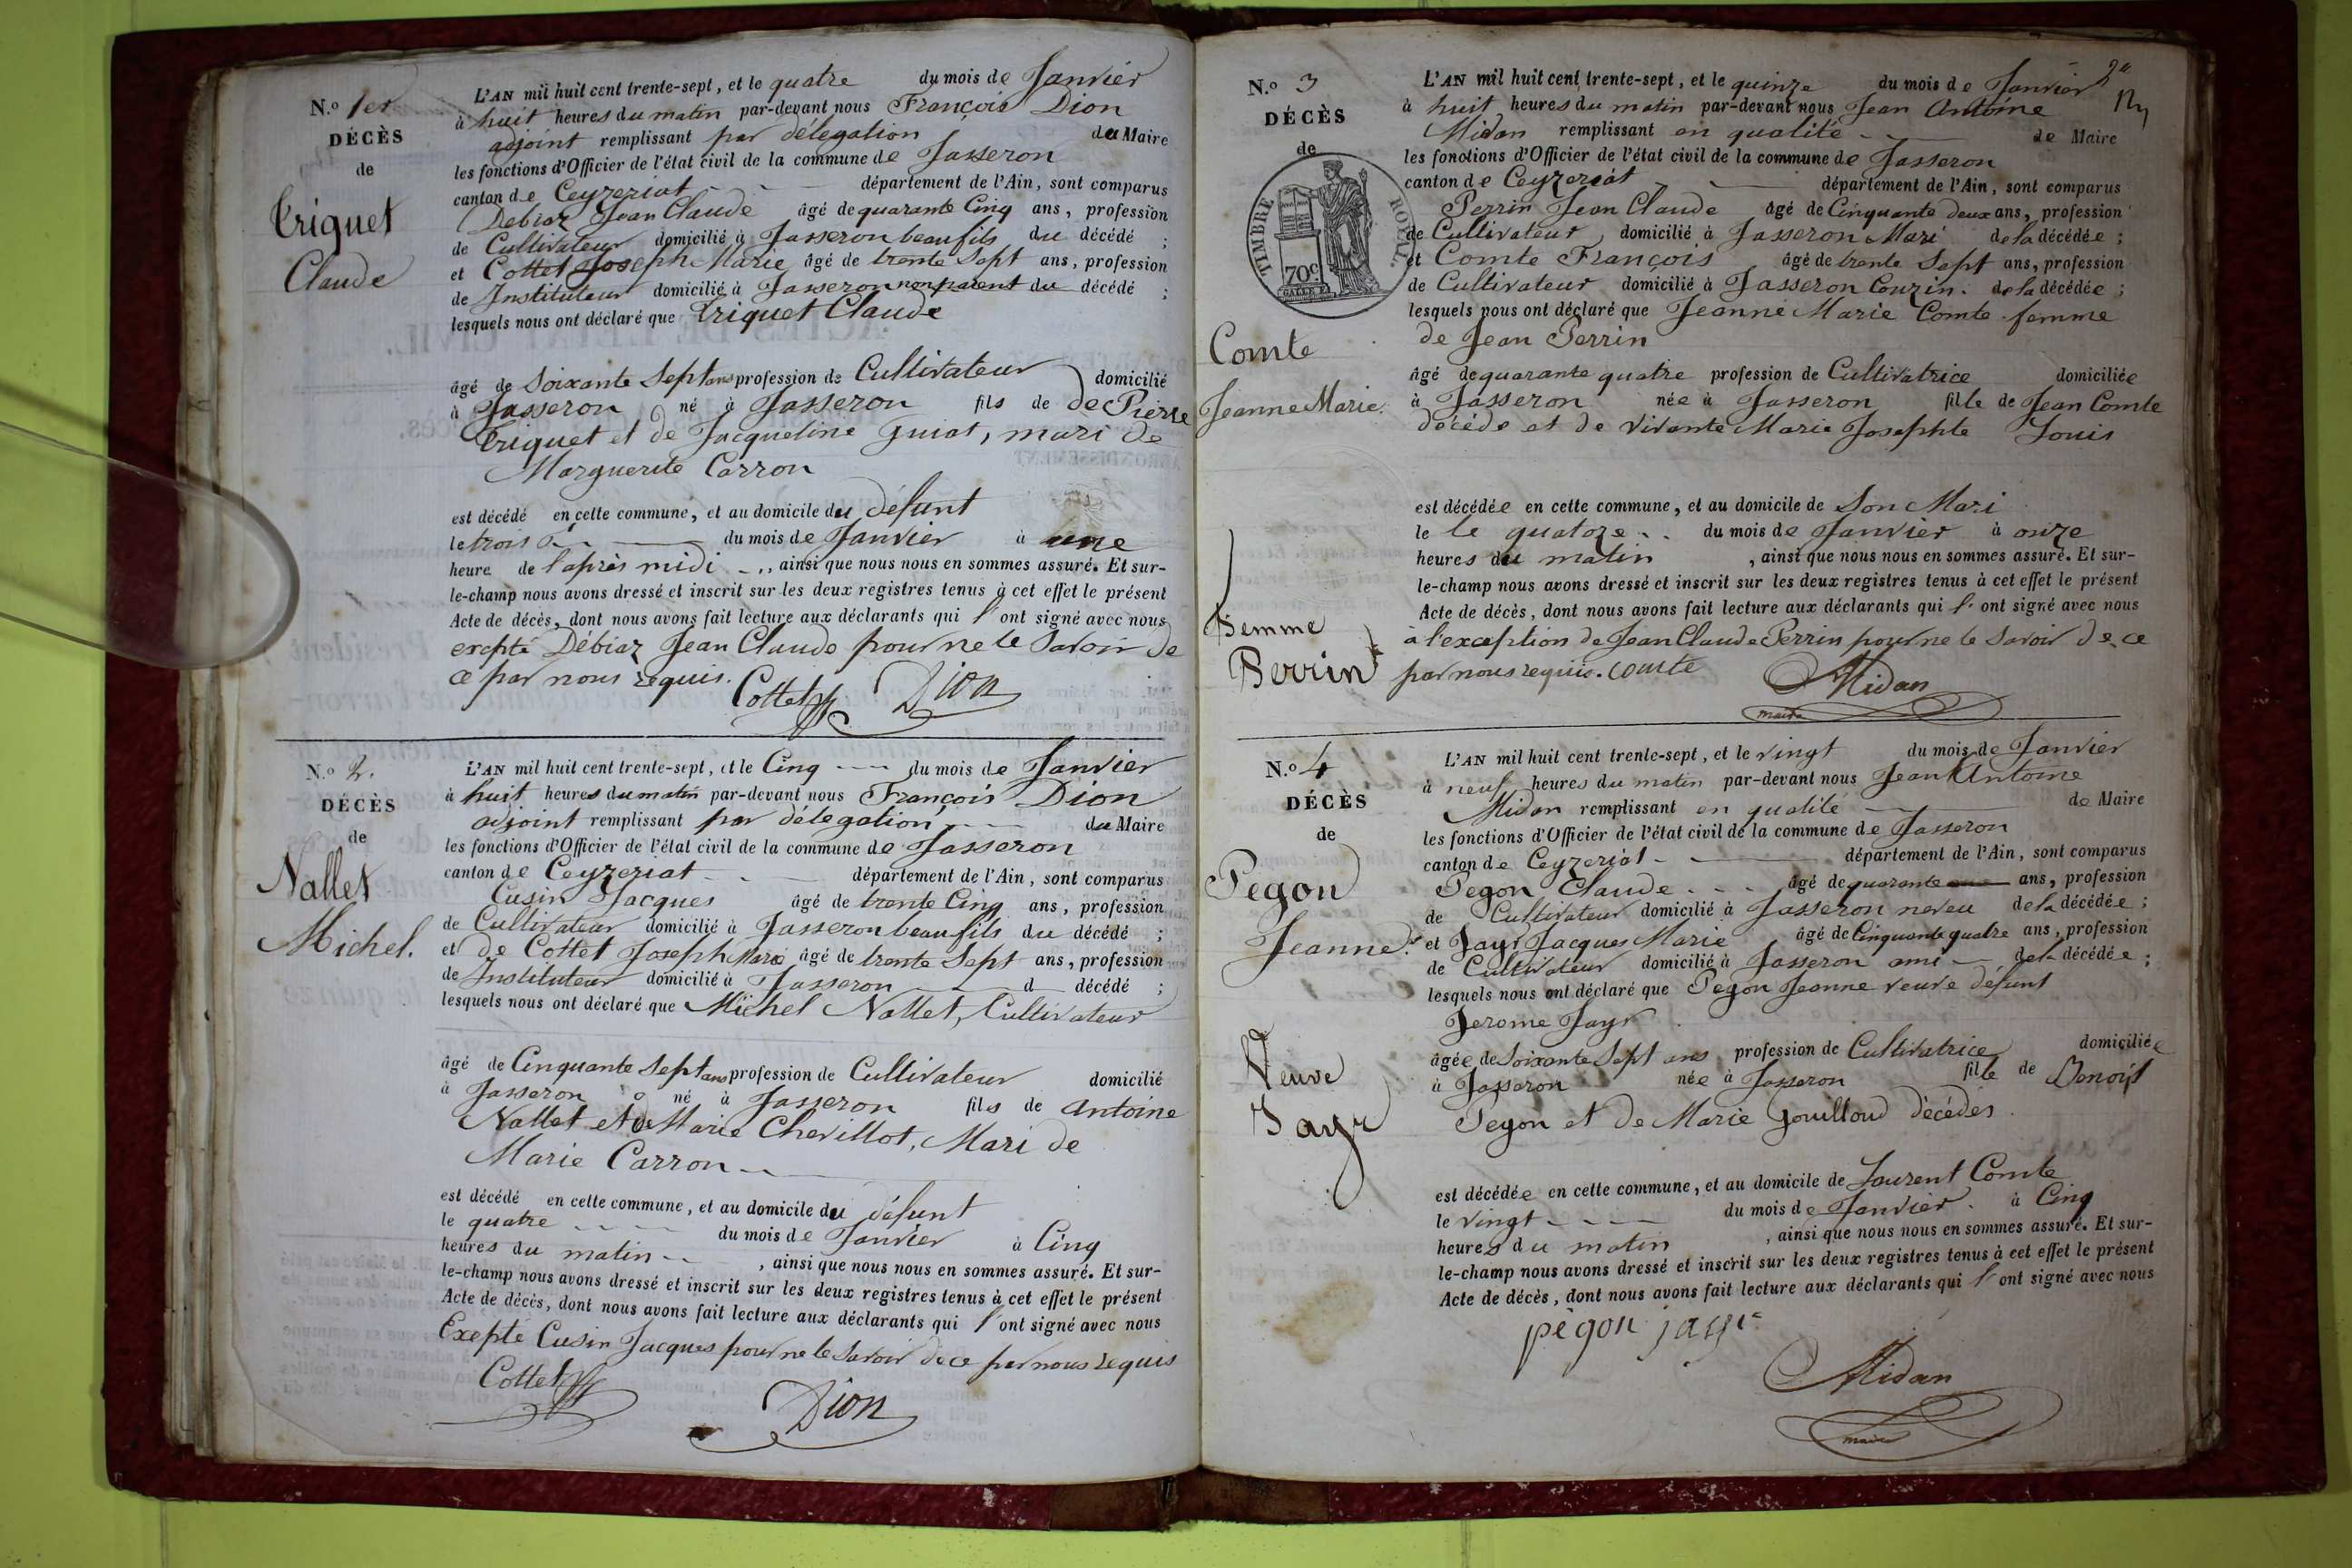 N.º 1er
DÉCÈS
de
Triquet
Claude
L'AN mil huit cent trente-sept, et le quatre du mois de Janvier
à huit heures du matin par-devant nous François Dion
adjoint remplissant par délegation du Maire
les fonctions d'Officier de l'état civil de la commune de Jasseron
canton de Ceyzeriat département de l'Ain, sont comparus
Debiaz Jean Claude âgé de quarante Cinq ans, profession
de Cultivateur domicilié à Jasseron beaufils du décédé ;
et Cottet Joseph Marie âgé de trente Sept ans, profession
de Instituteur domicilié à Jasseron non parent du décédé ;
lesquels nous ont déclaré que Triquet Claude
âgé de Soixante Sept ans profession de Cultivateur domicilié
à Jasseron né à Jasseron fils de de Pierre
Triquet et de Jacqueline Guiat, mari de
Marguerite Carron
est décédé en cette commune, et au domicile du défunt
le trois du mois de Janvier à une
heure de l'après midi, ainsi que nous nous en sommes assuré. Et sur-
le-champ nous avons dressé et inscrit sur les deux registres tenus à cet effet le présent
Acte de décès, dont nous avons fait lecture aux déclarants qui l'ont signé avec nous
excpté Débiaz Jean Claude pour ne le Savoir de
ce par nous requis. Cottet Dion
N.º 2.
DÉCÈS
de
Nallet
Michel.
L'AN mil huit cent trente-sept, et le Cinq du mois de Janvier
à huit heures du matin par-devant nous François Dion
adjoint remplissant par délegation du Maire
les fonctions d'Officier de l'état civil de la commune de Jasseron
canton de Ceyzeriat département de l'Ain, sont comparus
Cusin Jacques âgé de trente Cinq ans, profession
de Cultivateur domicilié à Jasseron beaufils du décédé ;
et de Cottet Joseph Marie âgé de trente Sept ans, profession
de Instituteur domicilié à Jasseron d décédé ;
lesquels nous ont déclaré que Michel Nallet, Cultivateur
âgé de Cinquante Sept ans profession de Cultivateur domicilié
à Jasseron né à Jasseron fils de Antoine
Nallet et de Marie Chevillot, Mari de
Marie Carron
est décédé en cette commune, et au domicile du défunt
le quatre du mois de Janvier à Cinq
heures du matin, ainsi que nous nous en sommes assuré. Et sur-
le-champ nous avons dressé et inscrit sur les deux registres tenus à cet effet le présent
Acte de décès, dont nous avons fait lecture aux déclarants qui l'ont signé avec nous
Exepté Cusin Jacques pour ne le Savoir de ce par nous requis
Cottet
Dion
2e
N.º 3
DÉCÈS
de
TIMBRE ROYAL.
70c
Comte
Jeanne Marie.
Femme
Perrin
L'AN mil huit cent trente-sept, et le quinze du mois de Janvier
à huit heures du matin par-devant nous Jean Antoine
Midan remplissant en qualité de Maire
les fonctions d'Officier de l'état civil de la commune de Jasseron
canton de Ceyzeriat département de l'Ain, sont comparus
Perrin Jean Claude âgé de Cinquante deux ans, profession
de Cultivateur domicilié à Jasseron Mari de la décédée ;
et Comte François âgé de trente Sept ans, profession
de Cultivateur domicilié à Jasseron Couzin. de la décédée ;
lesquels nous ont déclaré que Jeanne Marie Comte femme
de Jean Perrin
âgé de quarante quatre profession de Cultivatrice domiciliée
à Jasseron née à Jasseron fille de Jean Comte
décédé et de vivante Marie Josephte Louis
est décédée en cette commune, et au domicile de Son Mari
le le quatoze du mois de Janvier à onze
heures du matin, ainsi que nous nous en sommes assuré. Et sur-
le-champ nous avons dressé et inscrit sur les deux registres tenus à cet effet le présent
Acte de décès, dont nous avons fait lecture aux déclarants qui l'ont signé avec nous
à l'exception de Jean Claude Perrin pour ne le Savoir de ce
par nous requis. comte Midan
maire
N.º 4
DÉCÈS
de
Pegon
Jeanne.
Veuve
Jayr
L'AN mil huit cent trente-sept, et le vingt du mois de Janvier
à neuf heures du matin par-devant nous Jean Antoine
Midan remplissant en qualité de Maire
les fonctions d'Officier de l'état civil de la commune de Jasseron
canton de Ceyzeriat département de l'Ain, sont comparus
Pegon Claude âgé de quarante ans, profession
de Cultivateur domicilié à Jasseron neveu de la décédée ;
et Jayr Jacques Marie âgé de Cinquante quatre ans, profession
de Cultivateur domicilié à Jasseron ami de la décédée ;
lesquels nous ont déclaré que Pegon Jeanne veuve défunt
Jerome Jayr
âgée de Soixante Sept ans profession de Cultivatrice domiciliée
à Jasseron née à Jasseron fille de Benoît
Pegon et de Marie Gouilloud décédés
est décédée en cette commune, et au domicile de Laurent Comte
le vingt du mois de Janvier à Cinq
heures du matin, ainsi que nous nous en sommes assuré. Et sur-
le-champ nous avons dressé et inscrit sur les deux registres tenus à cet effet le présent
Acte de décès, dont nous avons fait lecture aux déclarants qui l'ont signé avec nous
pègon jayr
Midan
maire